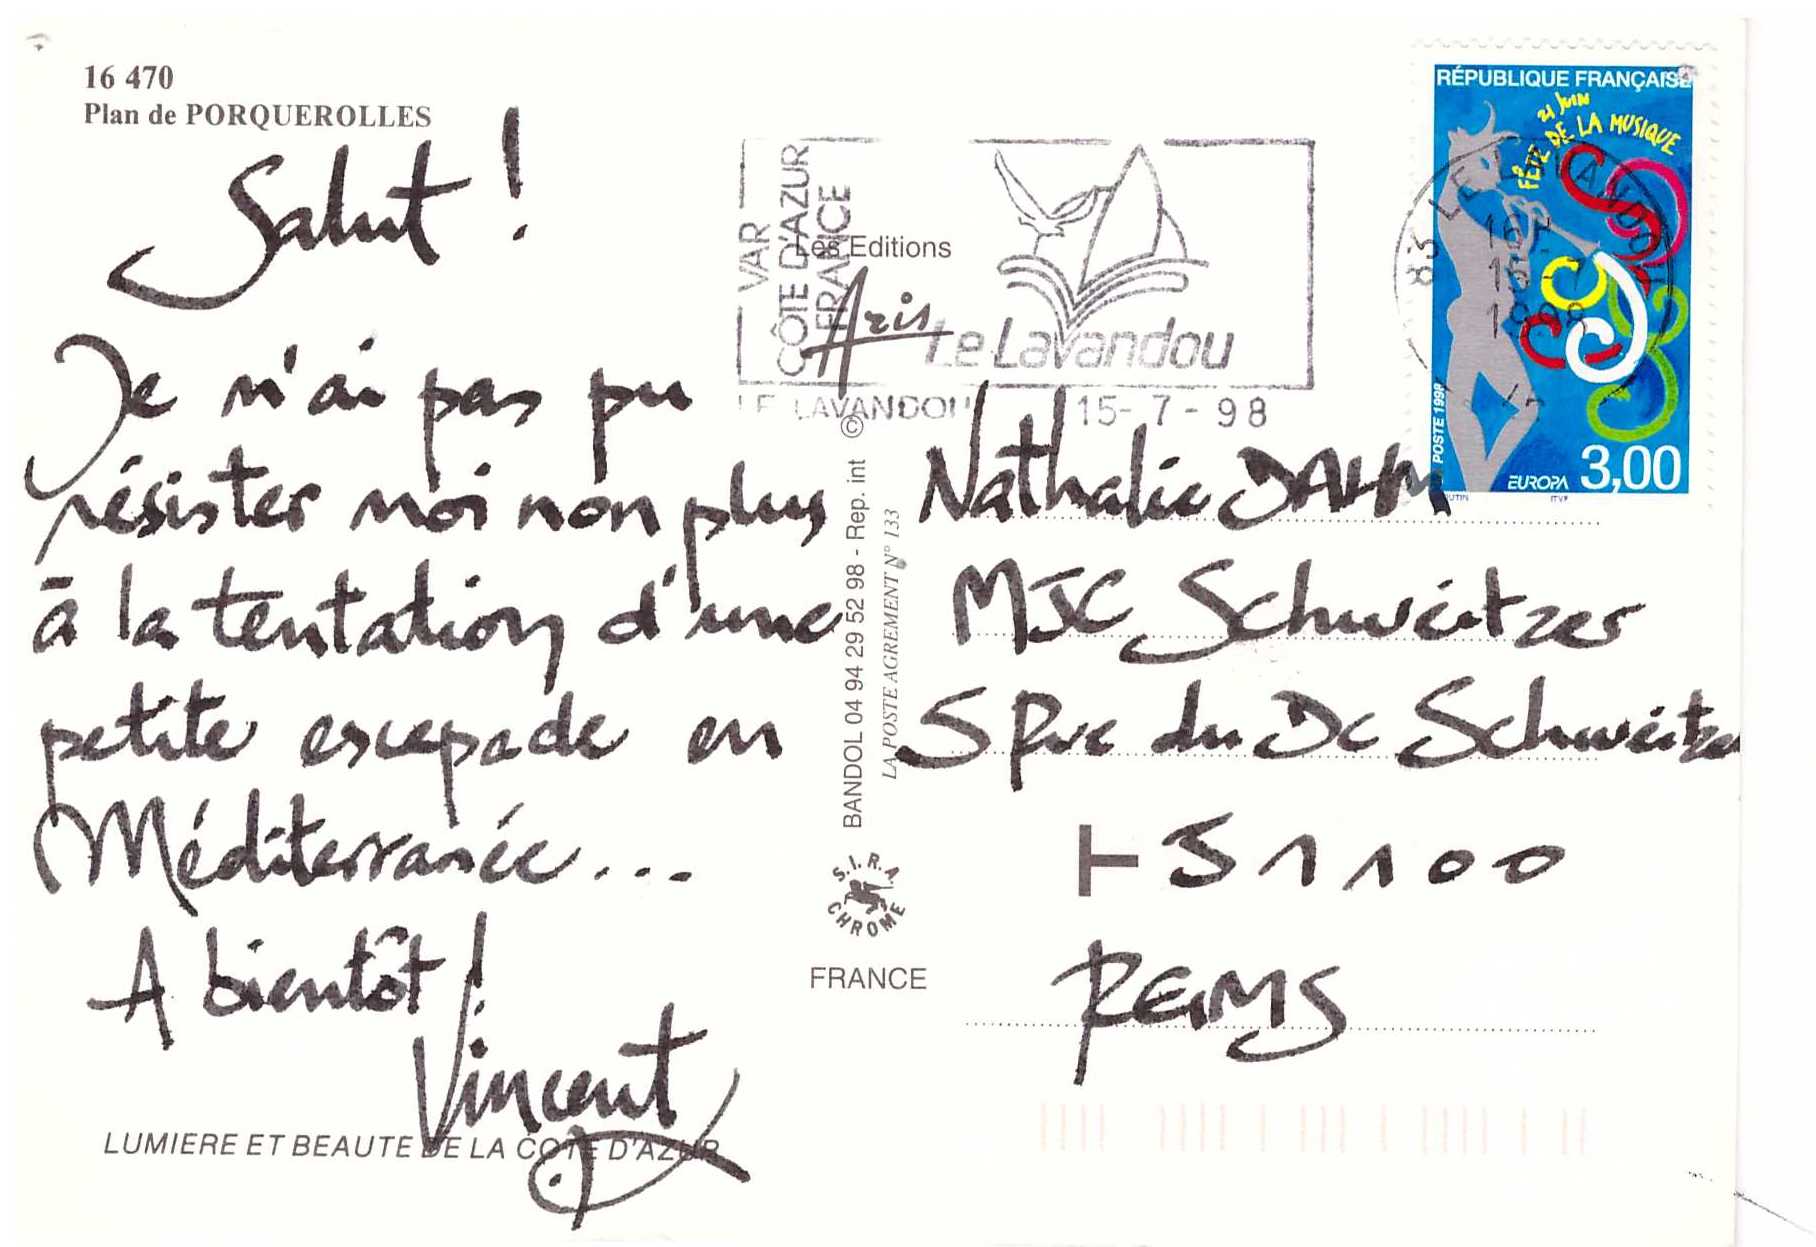 16 470
Plan de PORQUEROLLES
Salut !
Je n'ai pas pu
résister moi non plus
à la tentation d'une
petite escapade en
Méditerranée...
A bientôt !
Vincent
LUMIERE ET BEAUTE DE LA COTE D'AZUR
VAR
CÔTE D'AZUR
FRANCE
Les Editions
Aris
Le Lavandou
LE LAVANDOU 15-7-98
© BANDOL 04 94 29 52 98 - Rep. int
LA POSTE AGREMENT N° 133
S.I.R.A.
CHROME
FRANCE
RÉPUBLIQUE FRANÇAISE
21 JUIN
FÊTE DE LA MUSIQUE
83 LE LAVANDOU
POSTE 1998
EUROPA 3,00
ITVF
Nathalie DAHM
MJC Schweitzer
5 Rue du Dc Schweitzer
51100
REIMS